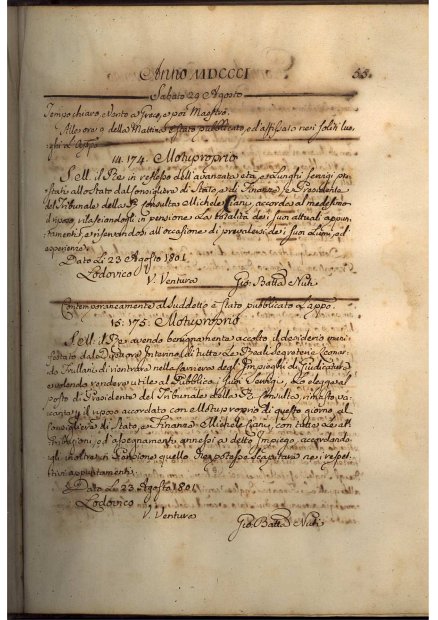 Anno MDCCCI
55.
Sabato 29 Agosto
Tempo chiaro, Vento a Greco, e poi Maestro.
Alle ore 9 della Mattina è stato pubblicato, ed affissato nei soliti luo,
ghi l'Appo
14. 174. Motuproprio
S. M. il Re in reflesso dell'avanzata età, e lunghi servigj pre,
stati allo Stato dal Consigliere di Stato, e di Finanze, e Presidente
del Tribunale della R. Consulta Michele Ciani, accorda al medesimo
il riposo rilasciandogli in pensione la totalità dei suoi attuali appun,
tamenti, e riservandosi all'occasione di prevalersi dei suoi Lumi, ed
esperienze.
Dato Li 23 Agosto 1801
Lodovico
V. Ventura
Gio. Batta Nuti
Contemporaneamente al Suddetto è stato pubblicato L'appo
15. 175. Motuproprio
S. M. il Re avendo benignamente accolto il desiderio mani,
festato dal Direttore Interno di tutte Le Reali Segreterie
Frullani di rientrare nella Carriera degl'Impieghi di Giudicatura
e volendo rendere utile al Pubblico i suoi Servigj, Lo elegge al
posto di Presidente del Tribunale della R. Consulta, rimasto va,
cante per il riposo accordato con Motuproprio di questo giorno al
Consigliere di Stato, e Finanze Michele Ciani, con tutte Le at,
tribuzioni, ed assegnamenti annessi a detto Impiego, accordando,
gli inoltre in Pensione quello che potesse scapitare nei respet,
tivi appuntamenti.
Dato Li 23 Agosto 1801
Lodovico
V. Ventura
Gio. Batta Nuti